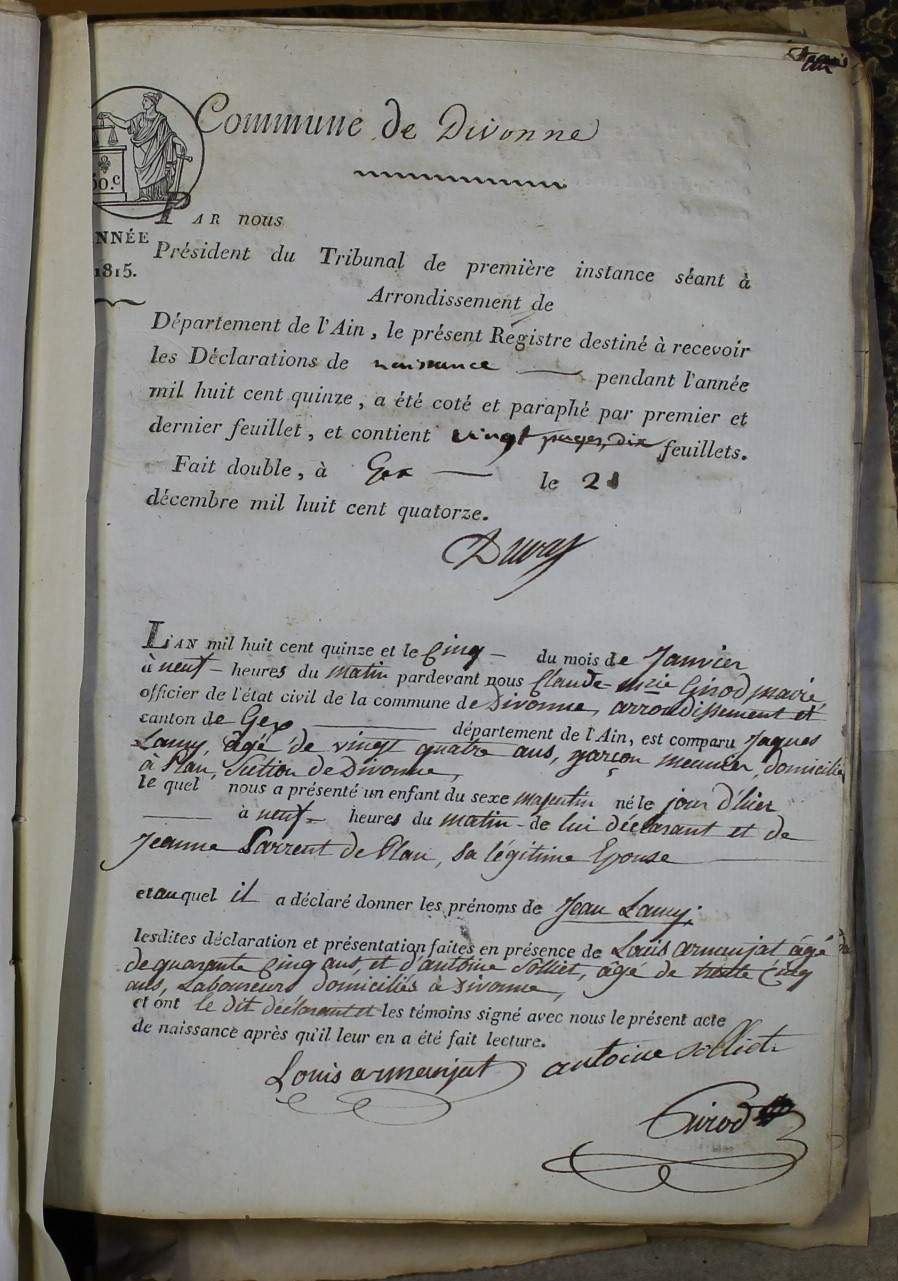 Commune de Divonne
50.c
PAR nous
NNÉE
1815.
Président du Tribunal de première instance séant à
Arrondissement de
Département de l'Ain, le présent Registre destiné à recevoir
les Déclarations de naissance pendant l'année
mil huit cent quinze, a été coté et paraphé par premier et
dernier feuillet, et contient vingt pages, dix feuillets.
Fait double, à Gex le 21
décembre mil huit cent quatorze.
L'AN mil huit cent quinze et le Cinq du mois de Janvier
à neuf heures du matin pardevant nous Claude-Mrie Girod maire
officier de l'état civil de la commune de Divonne, arrondissement et
canton de Gex département de l'Ain, est comparu Jaques
Lamy, âgé de vingt quatre ans, garçon meunier, domicilié
à Plan, Section de Divonne,
le quel nous a présenté un enfant du sexe masculin né le jour d'hier
à neuf heures du matin de lui déclarant et de
Jeanne Parrent de Plan, sa légitime Epouse
et auquel il a déclaré donner les prénoms de Jean Lamy.
lesdites déclaration et présentation faites en présence de Loüis armanjat âgé
de quarante Cinq ans, et d'antoine Solliet, âgé de trente Cinq
ans, Laboureurs domiciliés à Divonne,
et ont le dit déclarant et les témoins signé avec nous le présent acte
de naissance après qu'il leur en a été fait lecture.
Louis armanjat antoine solliet
Girod